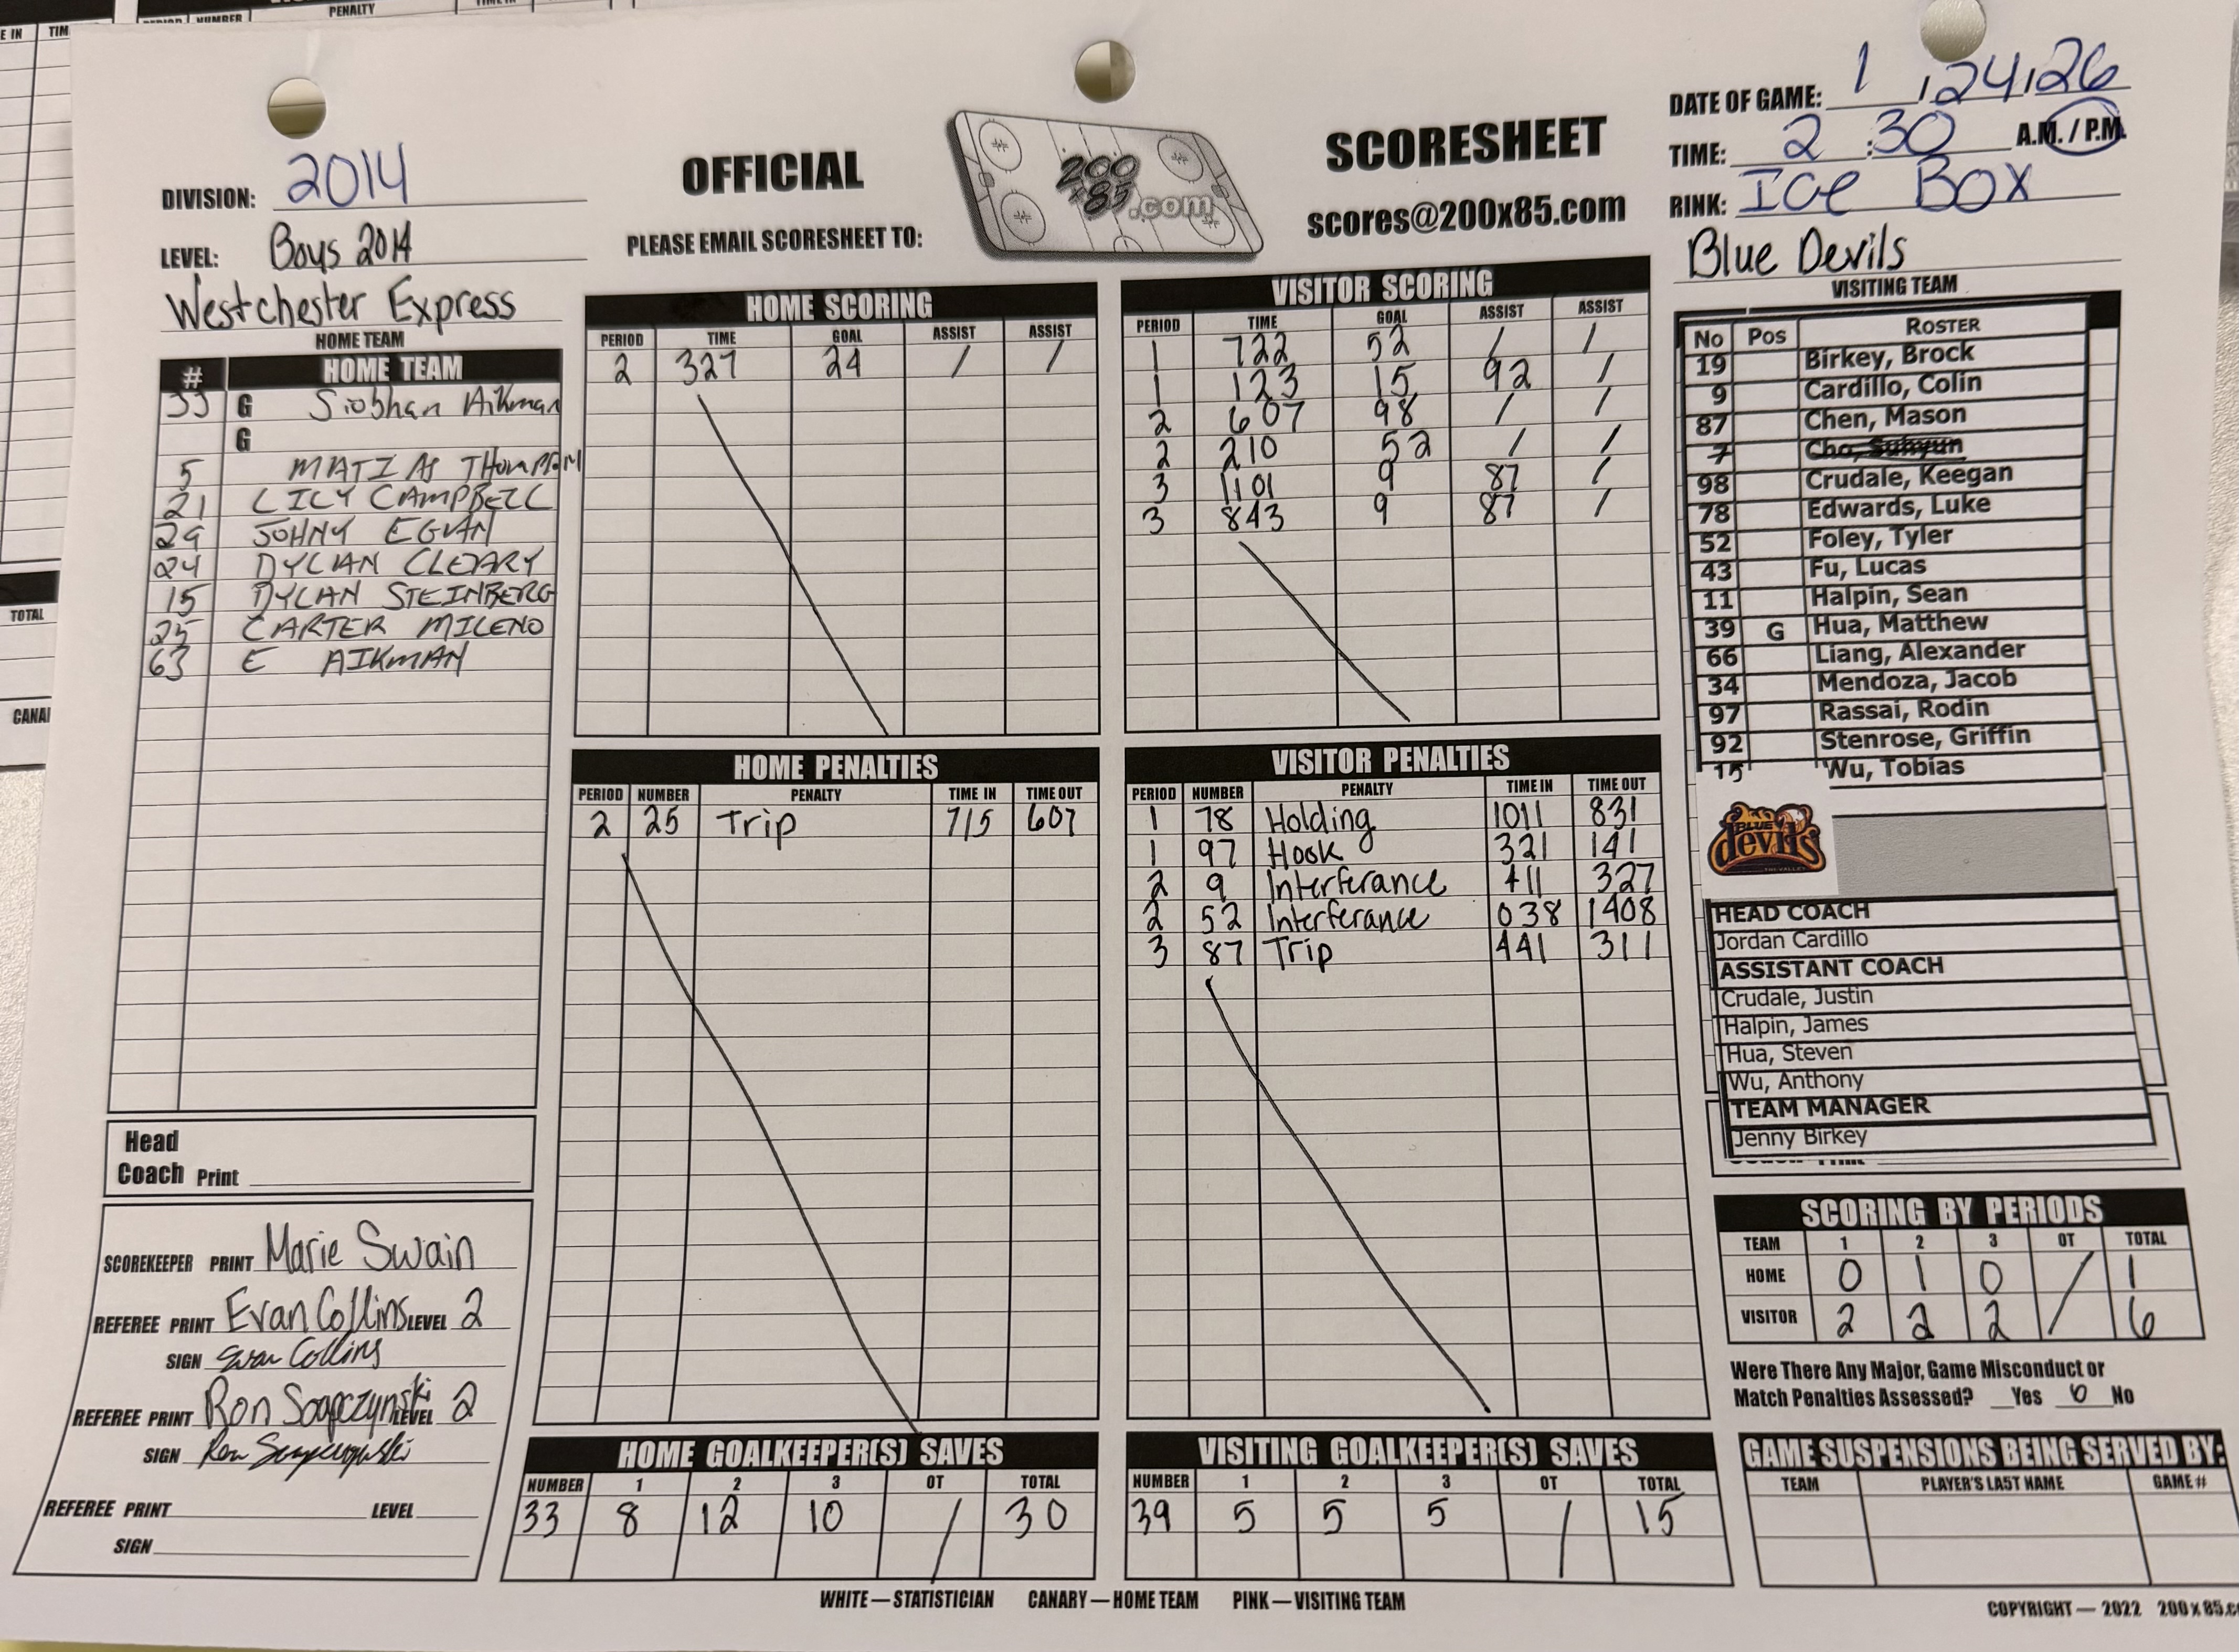 PENALTY
PERIOD NUMBER
E IN TIM
TOTAL
CANA
DIVISION: 2014
LEVEL: Boys 2014
Westchester Express
HOME TEAM
OFFICIAL
PLEASE EMAIL SCORESHEET TO:
200 x 85 .com
SCORESHEET
scores@200x85.com
DATE OF GAME: 1 / 24 / 26
TIME: 2 : 30 A.M. / P.M.
RINK: ICe BOX
Blue Devils
VISITING TEAM
# HOME TEAM
33 G Siobhan Aikman
G
5 MATIAS THOMPSON
21 LILY CAMPBELL
29 JOHNY EGVAN
24 DYLAN CLEARY
15 DYLAN STEINBERG
25 CARTER MILENO
63 E AIKMAN
Head
Coach Print
SCOREKEEPER PRINT Marie Swain
REFEREE PRINT Evan Collins LEVEL 2
SIGN Evan Collins
REFEREE PRINT Ron LEVEL 2
SIGN Ron
REFEREE PRINT LEVEL
SIGN
HOME SCORING
PERIOD TIME GOAL ASSIST ASSIST
2 327 24 / /
VISITOR SCORING
PERIOD TIME GOAL ASSIST ASSIST
1 722 52 / /
1 123 15 92 /
2 607 98 / /
2 210 52 / /
3 1101 9 87 /
3 843 9 87 /
HOME PENALTIES
PERIOD NUMBER PENALTY TIME IN TIME OUT
2 25 Trip 715 607
VISITOR PENALTIES
PERIOD NUMBER PENALTY TIME IN TIME OUT
1 78 Holding 1011 831
1 97 Hook 321 141
2 9 Interferance 411 327
2 52 Interferance 038 1408
3 87 Trip 441 311
HOME GOALKEEPER(S) SAVES
NUMBER 1 2 3 OT TOTAL
33 8 12 10 / 30
VISITING GOALKEEPER(S) SAVES
NUMBER 1 2 3 OT TOTAL
39 5 5 5 / 15
No Pos ROSTER
19 Birkey, Brock
9 Cardillo, Colin
87 Chen, Mason
7 Cho, Suhyun
98 Crudale, Keegan
78 Edwards, Luke
52 Foley, Tyler
43 Fu, Lucas
11 Halpin, Sean
39 G Hua, Matthew
66 Liang, Alexander
34 Mendoza, Jacob
97 Rassai, Rodin
92 Stenrose, Griffin
15 Wu, Tobias
BLUE
devils
HEAD COACH
Jordan Cardillo
ASSISTANT COACH
Crudale, Justin
Halpin, James
Hua, Steven
Wu, Anthony
TEAM MANAGER
Jenny Birkey
SCORING BY PERIODS
TEAM 1 2 3 OT TOTAL
HOME 0 1 0 / 1
VISITOR 2 2 2 / 6
Were There Any Major, Game Misconduct or
Match Penalties Assessed? __Yes 0 No
GAME SUSPENSIONS BEING SERVED BY:
TEAM PLAYER'S LAST NAME GAME #
WHITE — STATISTICIAN CANARY — HOME TEAM PINK — VISITING TEAM
COPYRIGHT — 2022 200 x 85.c